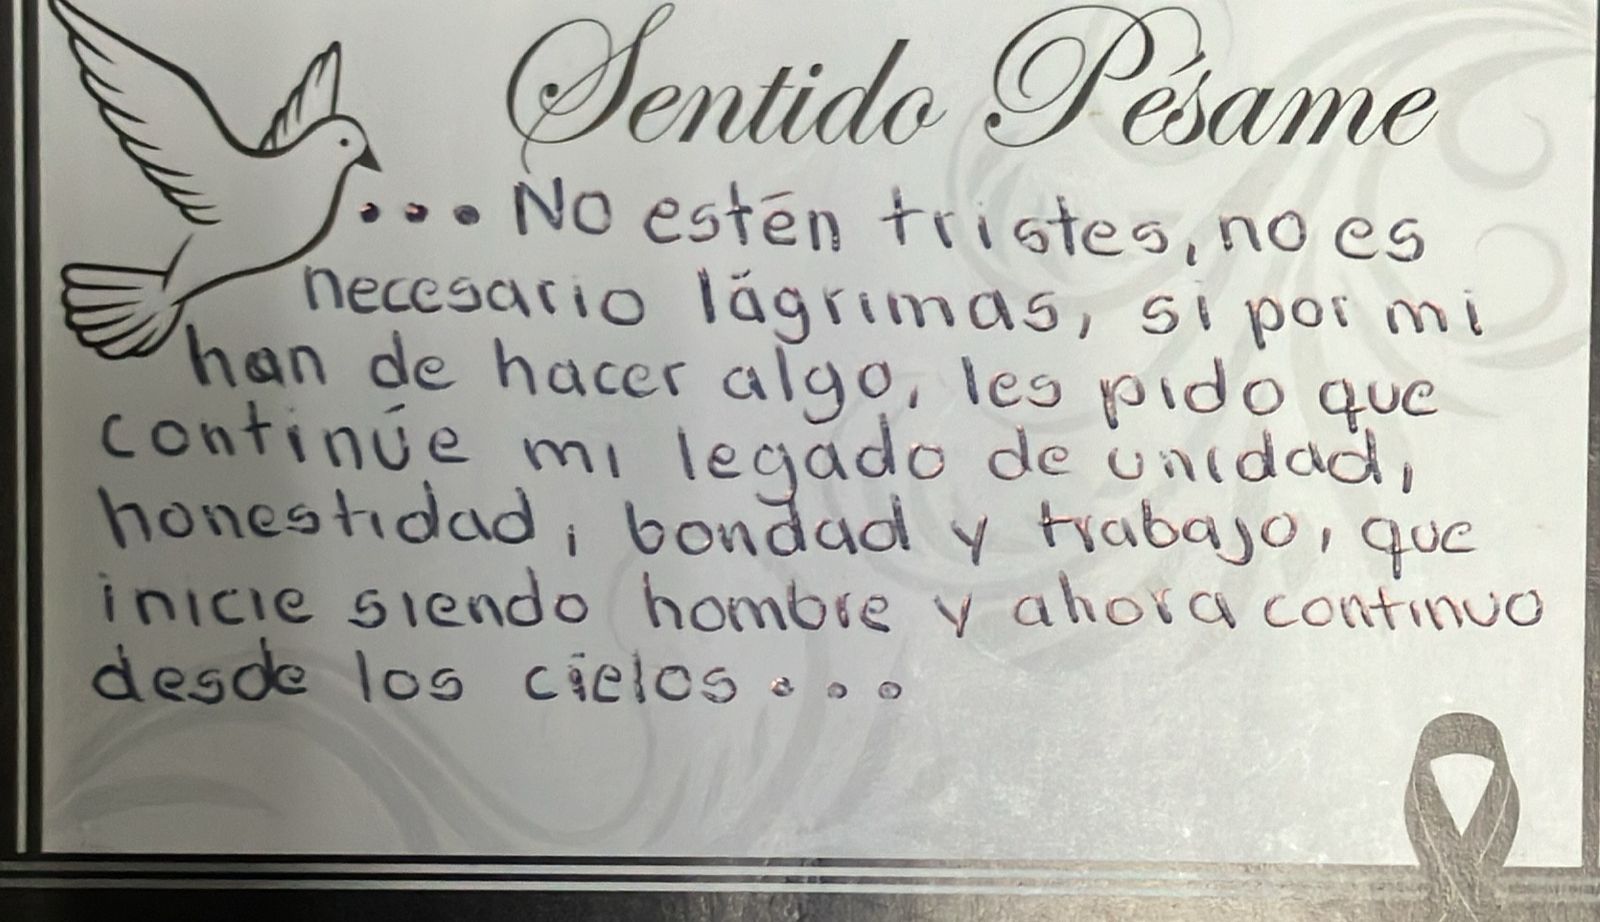 Sentido Pésame
... No estén tristes, no es
necesario lágrimas, si por mi
han de hacer algo, les pido que
continúe mi legado de unidad,
honestidad, bondad y trabajo, que
inicie siendo hombre y ahora continuo
desde los cielos...